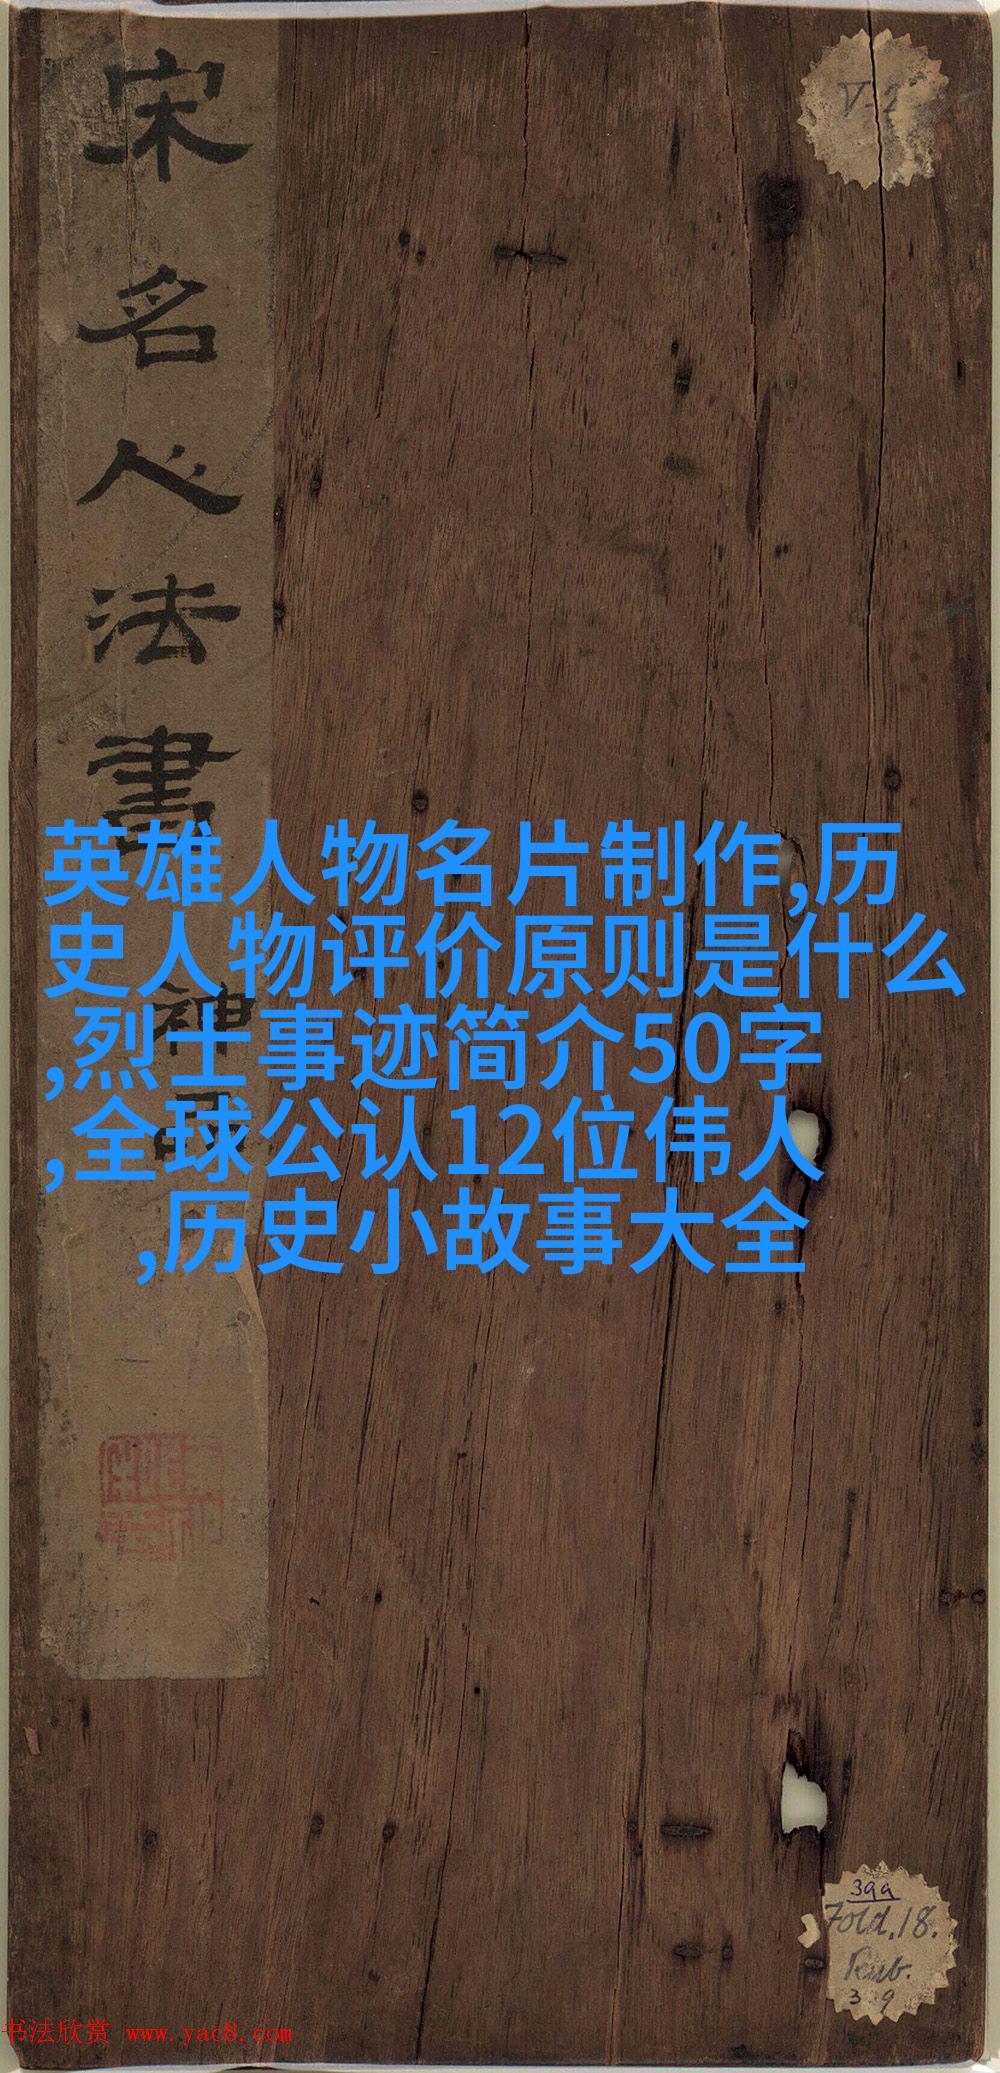 宋名人法書
神品
V-2
英雄人物名片制作,历
史人物评价原则是什么
,烈士事迹简介50字
,全球公认12位伟人
,历史小故事大全
399
Fold.18.
书法欣赏 www.yac8.com